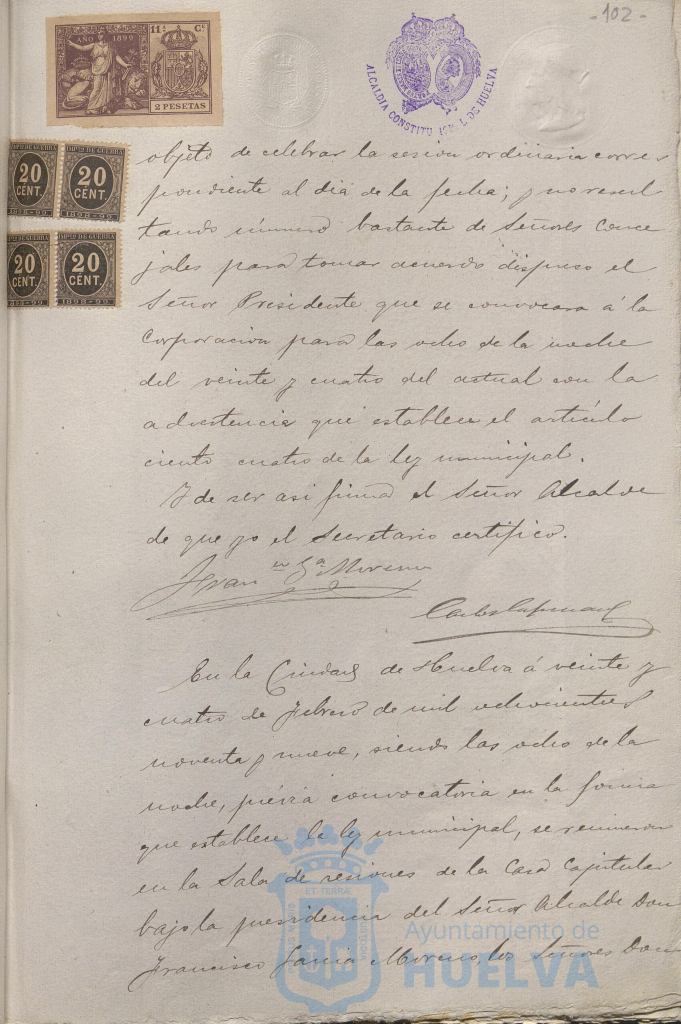 -102-
AÑO 1899
11.ª Cᵉ
2 PESETAS
ALCALDIA CONSTITU L DE HUELVA
IMPTO DE GUERRA
20 CENT.
1898-99
IMPTO DE GUERRA
20 CENT.
1898-99
IMPTO DE GUERRA
20 CENT.
1898-99
IMPTO DE GUERRA
20 CENT.
1898-99
objeto de celebrar la sesión ordinaria corres
pondiente al dia de la fecha; y no resul
tando número bastante de Señores Conce
jales para tomar acuerdo dispuso el
Señor Presidente que se convocara á la
Corporación para las ocho de la noche
del veinte y cuatro del actual con la
advertencia que establece el artículo
ciento cuatro de la ley municipal.
Y de ser asi firma el Señor Alcalde
de que yo el Secretario certifico.
Franᶜᵒ Gª Moreno
En la Ciudad de Huelva á veinte y
cuatro de Febrero de mil ochocientos
noventa y nueve, siendo las ocho de la
noche, prévia convocatoria en la forma
que establece la ley municipal, se reunieron
en la Sala de sesiones de la Casa Capitular
bajo la presidencia del Señor Alcalde Don
Francisco García Moreno, los Señores Don
Ayuntamiento de
HUELVA